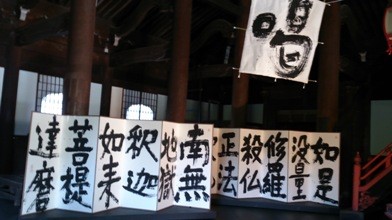 喝
如是
没量
修羅
殺仏
正法
南無
地獄
釈迦
如来
菩提
達磨